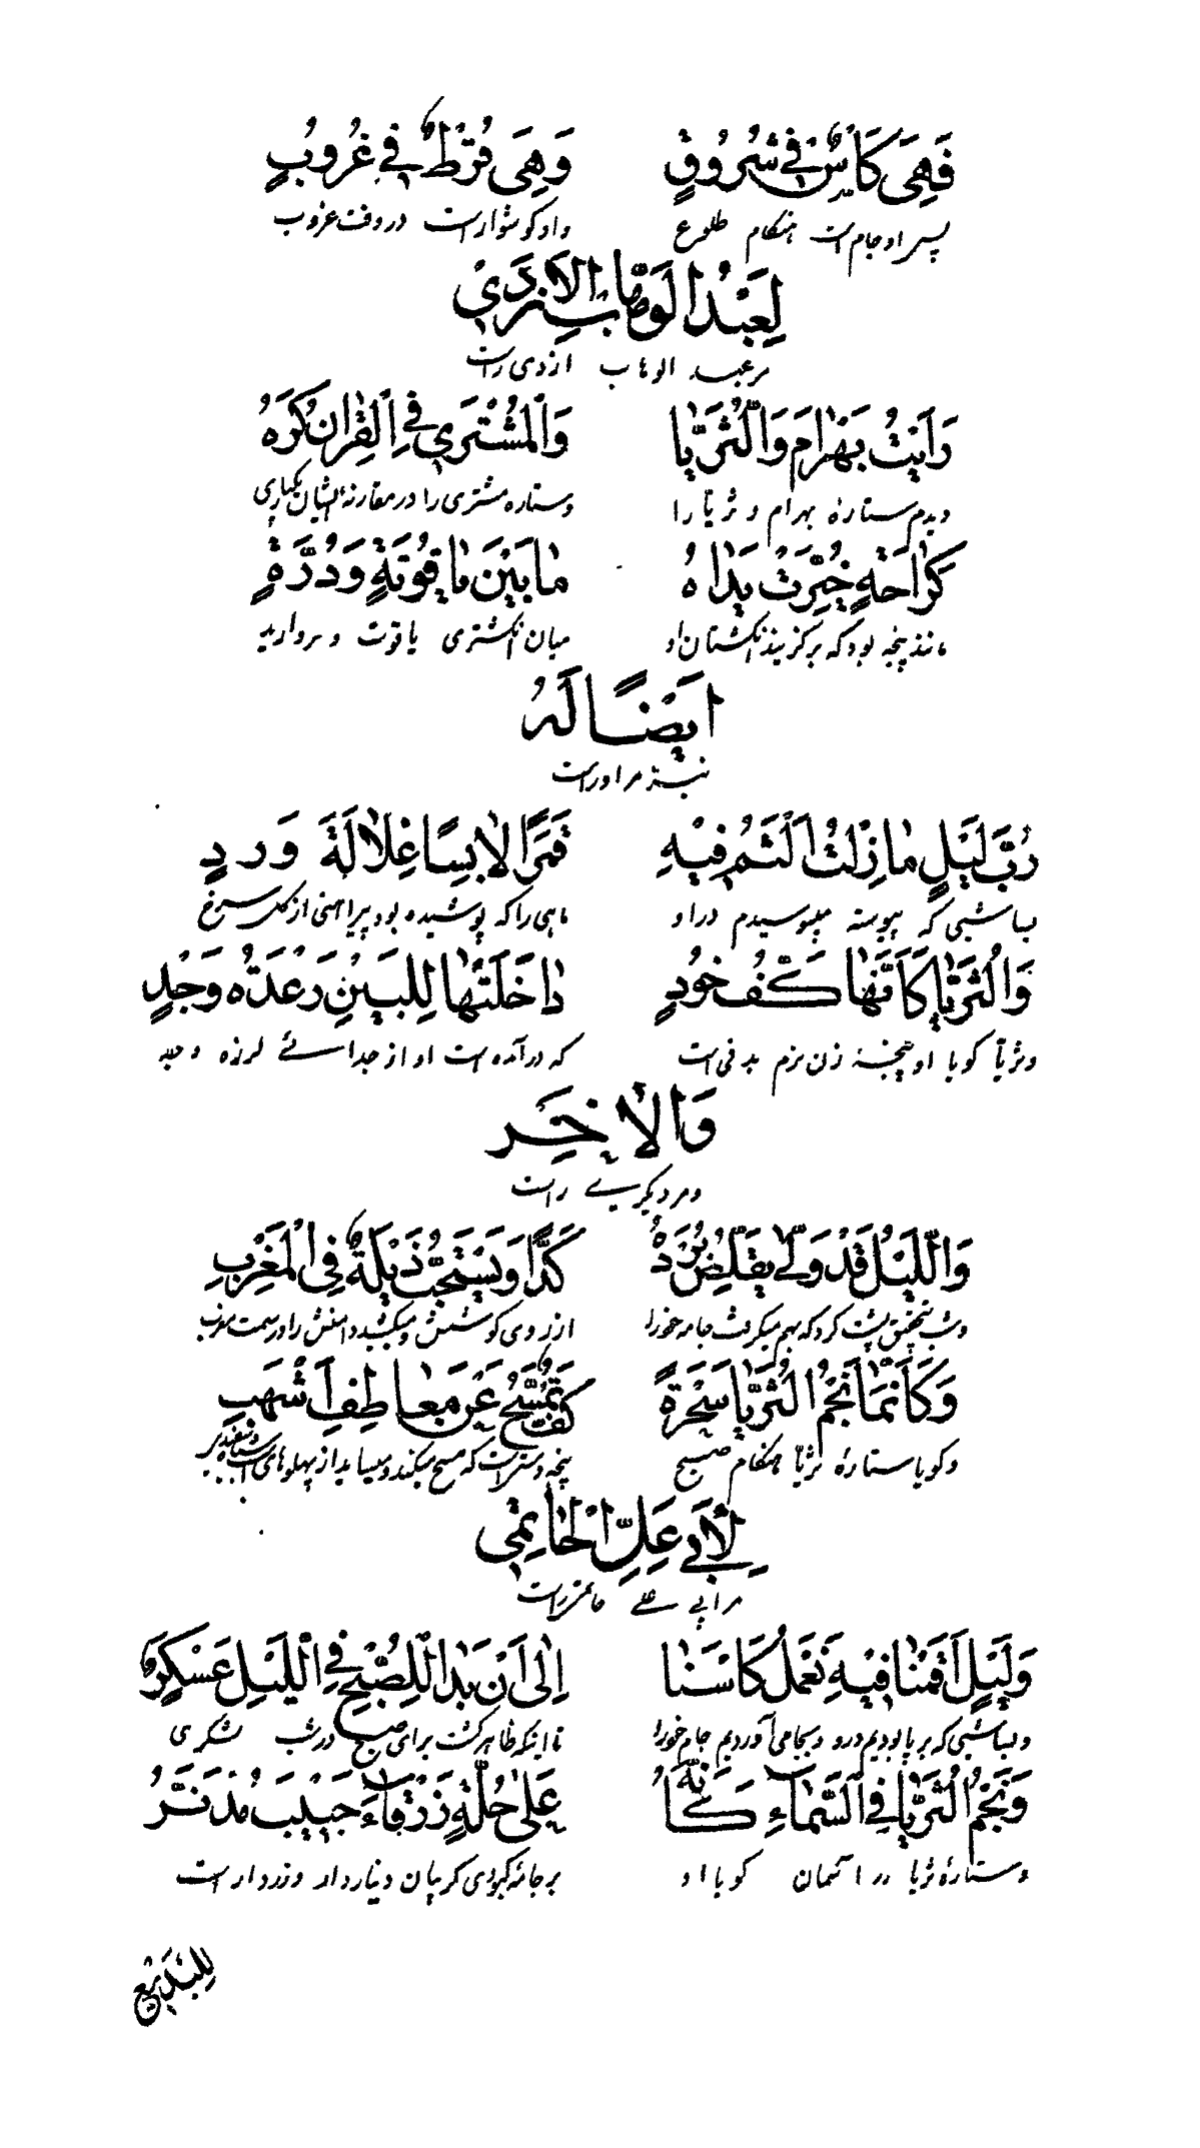 فَهِيَ كَأْسٌ فِي شُرُوقٍ وَهِيَ قُرْطٌ فِي غُرُوبٍ
پس او جام است هنگام طلوع و او گوشوار است در وقت غروب
لِعَبْدِ الْوَهَّابِ الْأَزْدِيّ
مر عبد الوهاب ازدی راست
رَأَيْتُ بَهْرَامَ وَالثُّرَيَّا وَالْمُشْتَرِي فِي الْقِرَانِ كَرَّهْ
دیدم ستارهٔ بهرام و ثریا را و ستاره مشتری را در مقارنهٔ ایشان یکباری
كَرَاحَةٍ خُيِّرَتْ يَدَاهُ مَا بَيْنَ يَاقُوتَةٍ وَدُرَّةٍ
مانند پنجه بود که برگزیند انگشتان او میان انگشتری یاقوت و مروارید
اَيْضًا لَهُ
نیز مر اوراست
رُبَّ لَيْلٍ مَا زِلْتُ اَلْثَمُ فِيْهِ قَمَرًا لَابِسًا غِلَالَةَ وَرْدٍ
بسا شبی که پیوسته میبوسیدم در او ماهی را که پوشیده بود پیراهنی از گل سرخ
وَالثُّرَيَّا كَاَنَّهَا كَفُّ خَوْدٍ دَاخَلَتْهَا لِلْبَيْنِ رَعْدَةُ وَجْدٍ
و ثریا گویا او پنجهٔ زن نرم بدنی است که در آمده است او از جدائے لرزه وجد
وَالْاٰخَر
و مر دیگریے راست
وَاللَّيْلُ قَدْ وَلّٰى يُقَلِّصُ بُرْدَهُ كَدًّا وَيَسْتَحِبُّ ذَيْلَهُ فِي الْمَغْرِبِ
و شب بتحقیق پشت کرد که بهم میگرفت جامه خود را از روی کوشش و میکشید دامنش را در سمت مغرب
وَكَاَنَّمَا نَجْمُ الثُّرَيَّا سَحْرَةً كَفٌّ تَمْسَحُ عَنْ مَعَاطِفِ اَشْهَبِ
و گویا ستارهٔ ثریا هنگام صبح پنجه که مسح میکند از پهلوهای
لِاَبِي عَلِيّ الْحَاتِمِيّ
مر ابی علے حاتمی راست
وَلَيْلٍ اَقَمْنَا فِيْهِ نُعْمِلُ كَاْسَنَا اِلٰى اَنْ بَدَا لِلصُّبْحِ فِي اللَّيْلِ عَسْكَرُ
و بسا شبی که بر پا بودیم در او و بجا می آوردیم جام خود را تا اینکه ظاهر گشت برای صبح در شب لشکری
وَنَجْمُ الثُّرَيَّا فِي السَّمَاءِ كَاَنَّهُ عَلٰى حُلَّةٍ زَرْقَاءَ جَيْبٌ مُدَنَّرُ
و ستارهٔ ثریا در آسمان گویا او بر جامهٔ کبودی گریبان دینار دار و زر دار است
لِلْبَدِيْعِ